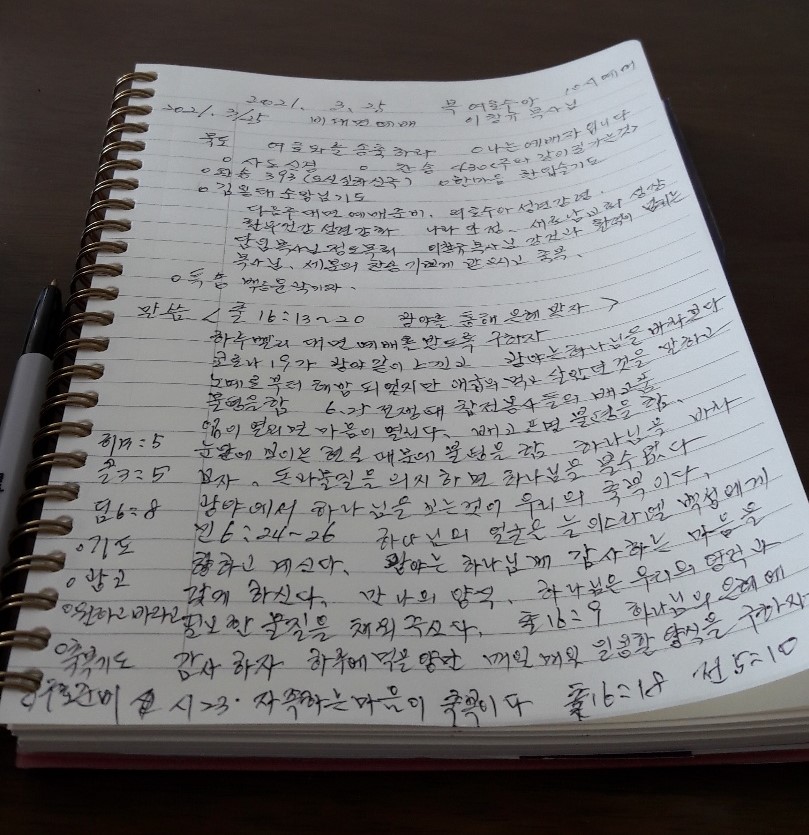 2021. 3. 25 목 여호수아 10시예배
2021. 3/25 비대면예배 이창규 목사님
묵도 여호와를 송축하라 ㅇ나는 예배자입니다
ㅇ사도신경 ㅇ찬송 430(주와 같이 길가는것)
ㅇ찬송 393(오 신실하신 주) ㅇ한마음 한입술기도
ㅇ김 소망님기도
다음주 대면 예배준비. 여호수아 성전간증.
나라 안정. 새로남교회 성장
담임목사님 이창규목사님 강건과 넘치는
목사님. 축복.
ㅇ특송
말씀 < 출 16:13~20 광야를 통해 은혜 받자 >
하루빨리 대면 예배를 받도록 구하자
코로나 19가 광야같이 느끼고 광야는 하나님을 바라본다
노예로부터 해방 되었지만 애굽의 먹고 살았던 것을 말하고
불평을함 6.25 전쟁때 참전용사들의 배고픔
입이 열리면 마음이 열린다. 배고프면 불평을 함.
히13:5 눈앞에 보이는 현실 때문에 불평을 함 하나님을 바라
출3:5 보자. 돈과물질을 의지하면 하나님을 볼수 없다
딤6:8 광야에서 하나님을 믿는것이 우리의 축복이다.
ㅇ기도 민6:24~26 하나님의 얼굴은 늘 이스라엘 백성에게
ㅇ광고 향하고 계신다. 광야는 하나님께 감사하는 마음을
ㅇ원하고 바라고 갖게 하신다. 만나의 양식. 하나님은 우리의 영적과
필요한 물질을 채워 주신다. 출16:9 하나님의 은혜에
ㅇ축복기도 감사 하자 하루에 먹을양만 매일 매일 일용할 양식을 구하자
시23. 자족하는 마음이 축복이다 출16:18 전5:10